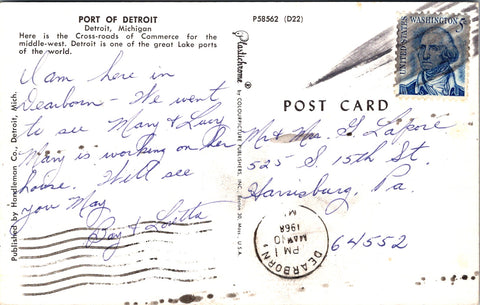 PORT OF DETROIT
Detroit, Michigan
Here is the Cross-roads of Commerce for the
middle-west. Detroit is one of the great Lake ports
of the world.
I am here in
Dearborn - We went
to see Mary & Lucy
Mary is working on her
house. Will see
you May
Ray & Loretta
Published by Handleman Co., Detroit, Mich.
P58562 (D22)
Plastichrome ®
by COLOURPICTURE PUBLISHERS, INC., Boston 30, Mass., U.S.A.
POST CARD
UNITED STATES
WASHINGTON
5
Mr & Mrs. G. Lapore
525 S. 15th St.
Harrisburg, Pa.
64552
DEARBORN
PM
MAY 10
1968